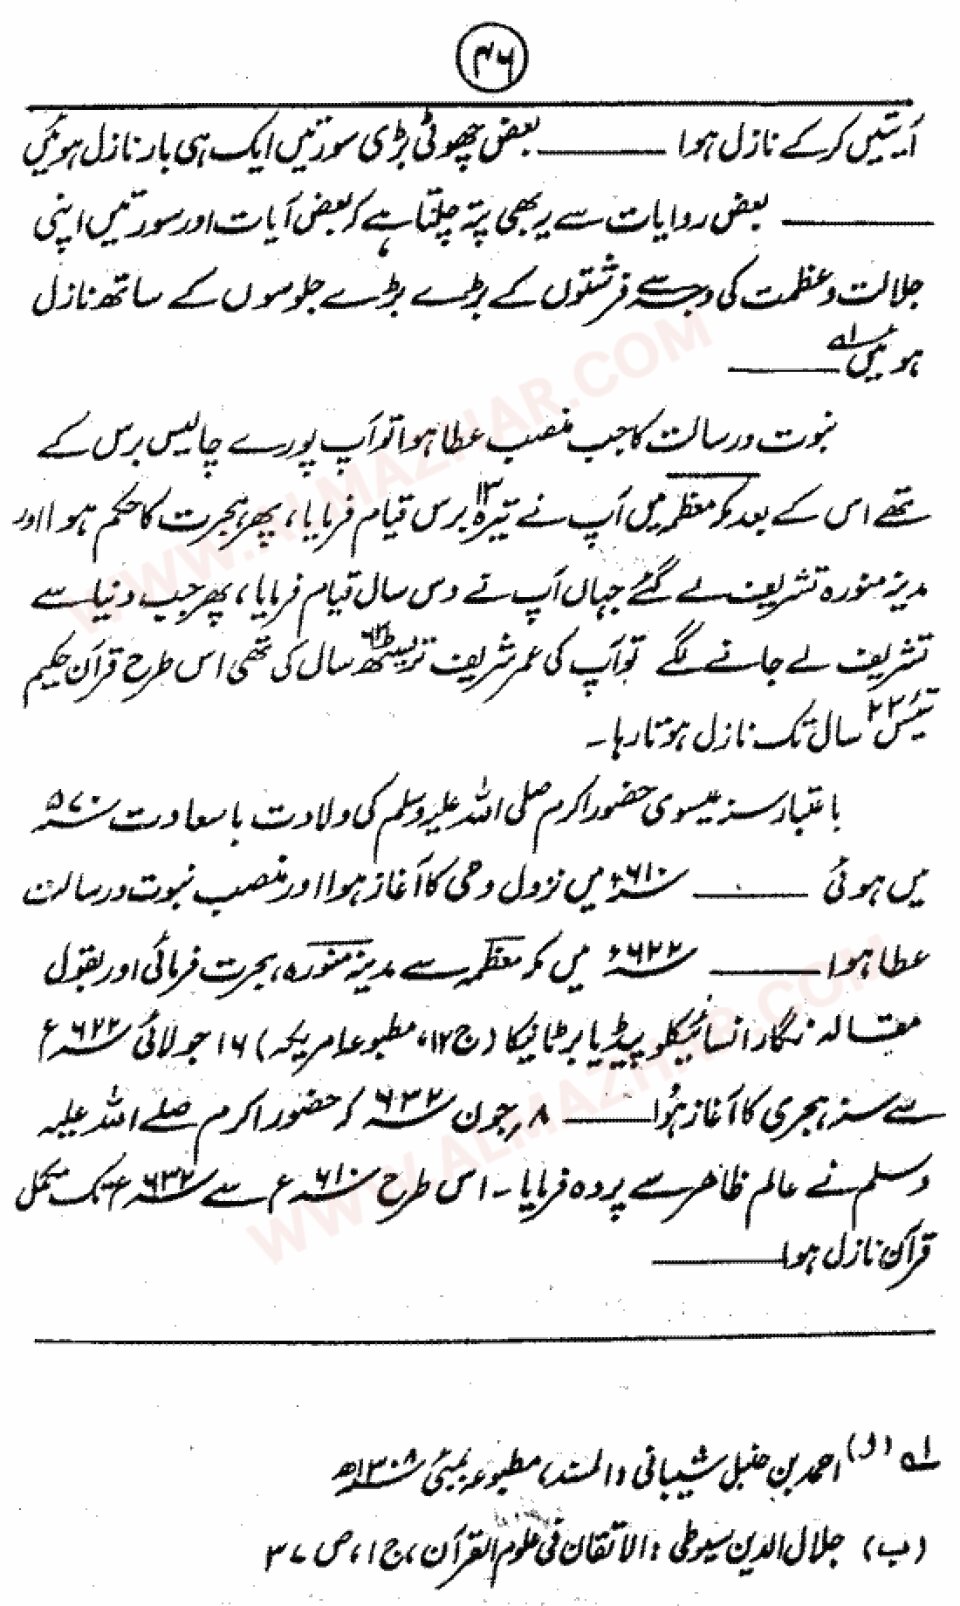 ۴۶
آیتیں کرکے نازل ہوا ——— بعض چھوٹی بڑی سورتیں ایک ہی بار نازل ہوئیں
——— بعض روایات سے یہ بھی پتہ چلتا ہے کہ بعض آیات اور سورتیں اپنی
جلالت و عظمت کی وجہ سے فرشتوں کے بڑے بڑے جلوسوں کے ساتھ نازل
ہوئیں ۱ہ ———
نبوت و رسالت کا جب منصب عطا ہوا تو آپ پورے چالیس برس کے
تھے اس کے بعد مکہ معظمہ میں آپ نے تیرہ ۱۳ برس قیام فرمایا، پھر ہجرت کا حکم ہوا اور
مدینہ منورہ تشریف لے گئے جہاں آپ نے دس سال قیام فرمایا، پھر جب دنیا سے
تشریف لے جانے لگے تو آپ کی عمر شریف تریسٹھ ۶۳ سال کی تھی اس طرح قرآن حکیم
تئیس ۲۲ سال تک نازل ہوتا رہا۔
باعتبار سنہ عیسوی حضور اکرم صلی اللہ علیہ وسلم کی ولادت باسعادت ۵۷۰ سنہ
میں ہوئی ——— ۶۱۰ء میں نزول وحی کا آغاز ہوا اور منصب نبوت و رسالت
عطا ہوا ——— ۶۲۲ء میں مکہ معظمہ سے مدینہ منورہ ہجرت فرمائی اور بقول
مقالہ نگار انسائیکلوپیڈیا برٹانیکا (ج ۱۲، مطبوعہ امریکہ) ۱۶ جولائی ۶۲۲ء
سے سنہ ہجری کا آغاز ہُوا ——— ۸؍جون ۶۳۲ء کو حضور اکرم صلے اللہ علیہ
وسلم نے عالم ظاہر سے پردہ فرمایا۔ اس طرح ۶۱۰ء سے ۶۳۲ء تک مکمل
قرآن نازل ہوا ———
۱ہ (ا) احمد بن حنبل شیبانی: المسند، مطبوعہ بمبئی ۱۳۰۸ھ
(ب) جلال الدین سیوطی: الاتقان فی علوم القرآن، ج ۱، ص ۳۷
WWW.ALMAZHAR.COM
WWW.ALMAZHAR.COM